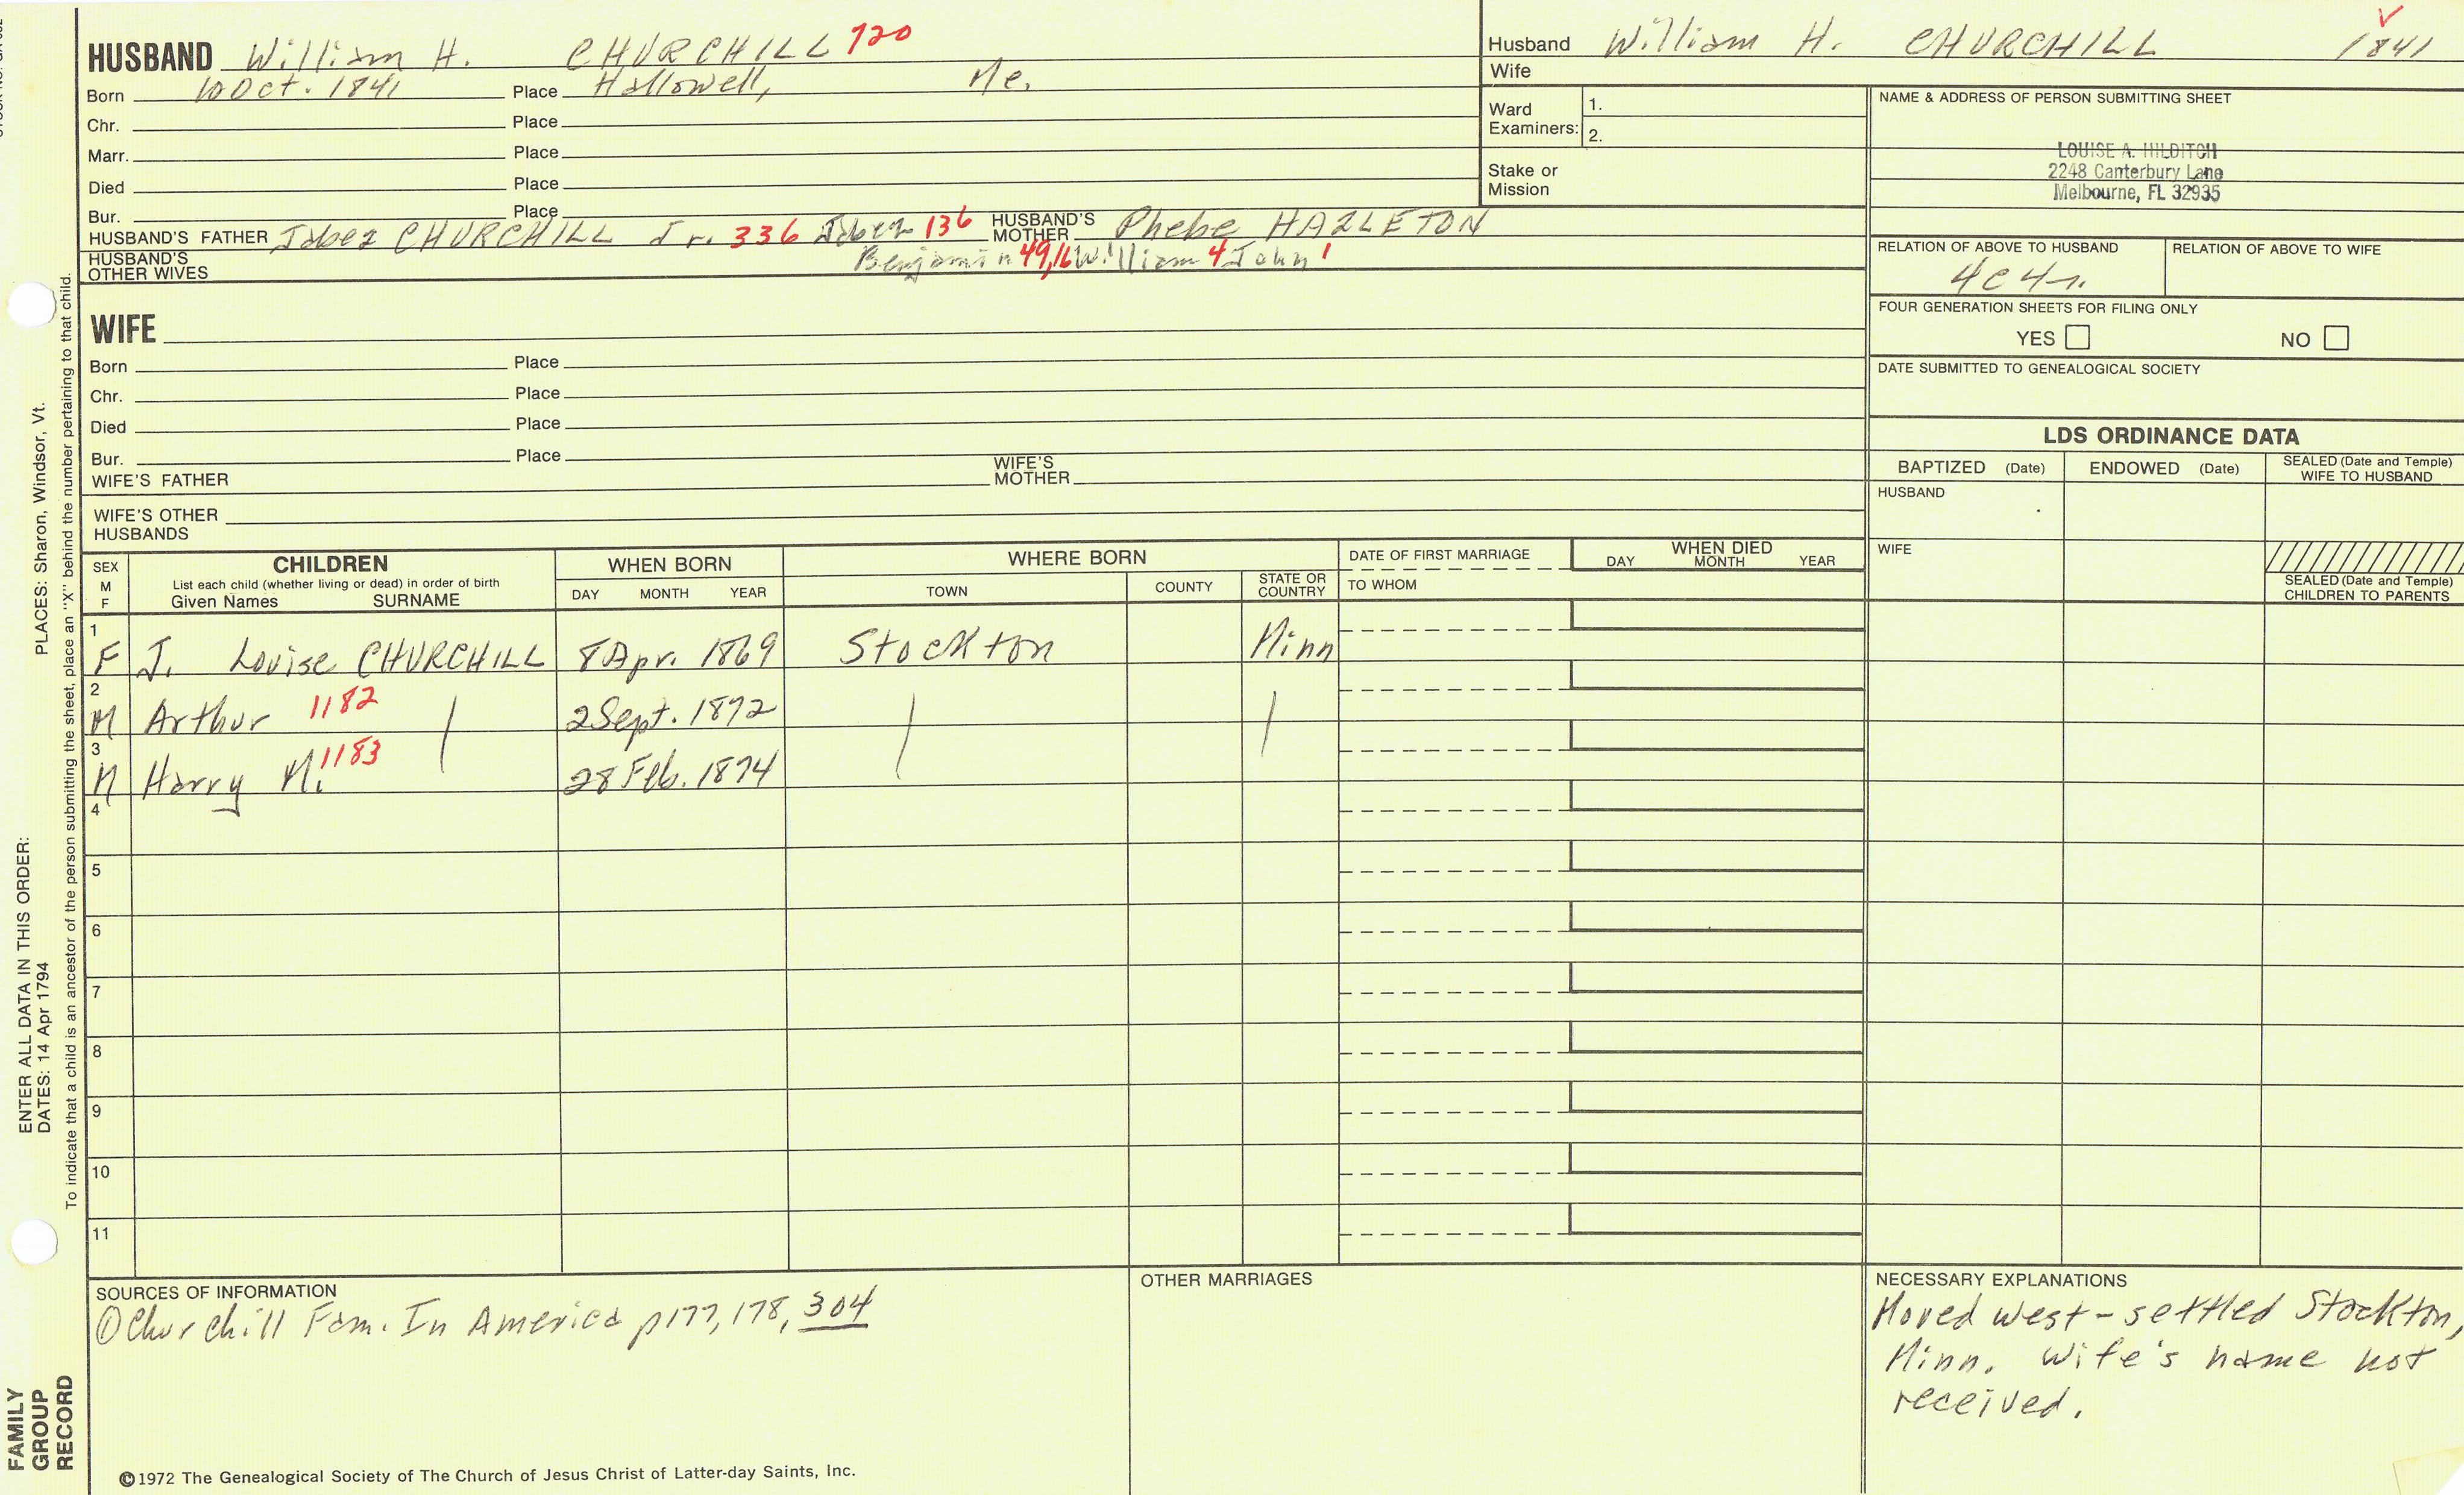 HUSBAND William H. CHURCHILL 720
Born 10 Oct. 1841 Place Hallowell, Me.
Chr. Place
Marr. Place
Died Place
Bur. Place
HUSBAND'S FATHER Jabez CHURCHILL Jr. 336 Jabez 136 HUSBAND'S MOTHER Phebe HAZLETON
HUSBAND'S OTHER WIVES Benjamin 49,16 William 4 John 1
WIFE
Born Place
Chr. Place
Died Place
Bur. Place
WIFE'S FATHER WIFE'S MOTHER
WIFE'S OTHER HUSBANDS
Husband William H. CHURCHILL 1841
Wife
Ward Examiners: 1.
2.
Stake or Mission
NAME & ADDRESS OF PERSON SUBMITTING SHEET
LOUISE A. HILDITCH
2248 Canterbury Lane
Melbourne, FL 32935
RELATION OF ABOVE TO HUSBAND RELATION OF ABOVE TO WIFE
4C4r.
FOUR GENERATION SHEETS FOR FILING ONLY
YES NO
DATE SUBMITTED TO GENEALOGICAL SOCIETY
LDS ORDINANCE DATA
BAPTIZED (Date) ENDOWED (Date) SEALED (Date and Temple) WIFE TO HUSBAND
HUSBAND
WIFE
SEALED (Date and Temple) CHILDREN TO PARENTS
SEX M F CHILDREN
List each child (whether living or dead) in order of birth
Given Names SURNAME
WHEN BORN
DAY MONTH YEAR
WHERE BORN
TOWN COUNTY STATE OR COUNTRY
DATE OF FIRST MARRIAGE
TO WHOM
WHEN DIED
DAY MONTH YEAR
1 F J. Louise CHURCHILL 8 Apr. 1869 Stockton Minn
2 M Arthur 1182 2 Sept. 1872
3 M Harry M. 1183 28 Feb. 1874
4
5
6
7
8
9
10
11
SOURCES OF INFORMATION
① Churchill Fam. In America p177, 178, 304
OTHER MARRIAGES
NECESSARY EXPLANATIONS
Moved west - settled Stockton,
Minn. Wife's name not
received.
©1972 The Genealogical Society of The Church of Jesus Christ of Latter-day Saints, Inc.
FAMILY
GROUP
RECORD
ENTER ALL DATA IN THIS ORDER:
DATES: 14 Apr 1794 PLACES: Sharon, Windsor, Vt.
To indicate that a child is an ancestor of the person submitting the sheet, place an "X" behind the number pertaining to that child.